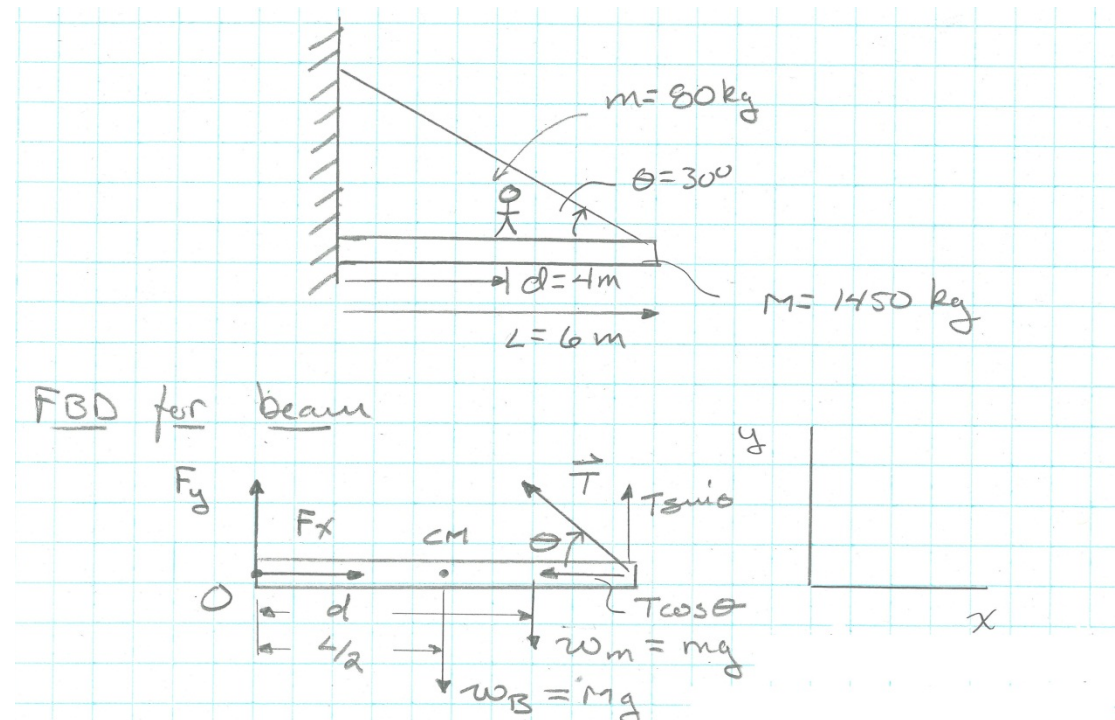 m = 80 kg
θ = 30°
d = 4 m
M = 1450 kg
L = 6 m
FBD for beam
y
Fy
T
T sin θ
Fx
CM
θ
O
d
T cos θ
x
L/2
wm = mg
wB = Mg